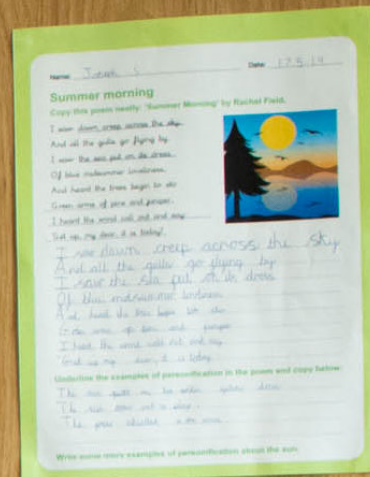 Name: S
Date: 17.5.19
Summer morning
Copy this poem neatly: 'Summer Morning' by Rachel Field.
I saw dawn creep across the sky,
And all the gulls go flying by.
I saw the sea put on its dress
Of blue midsummer loveliness,
And heard the trees begin to stir
Green arms of pine and juniper.
I heard the wind call out and say:
'Get up, my dear, it is today!'
I saw dawn creep across the sky
And all the gulls go flying by
I saw the sea put on its dress
Of blue midsummer loveliness
And heard the trees begin to stir
Green arms of pine and
I heard the wind call out and say
Get up my dear, it is today
Underline the examples of personification in the poem and copy below:
The sea puts on
The
The
Write some more examples of personification about the sun.